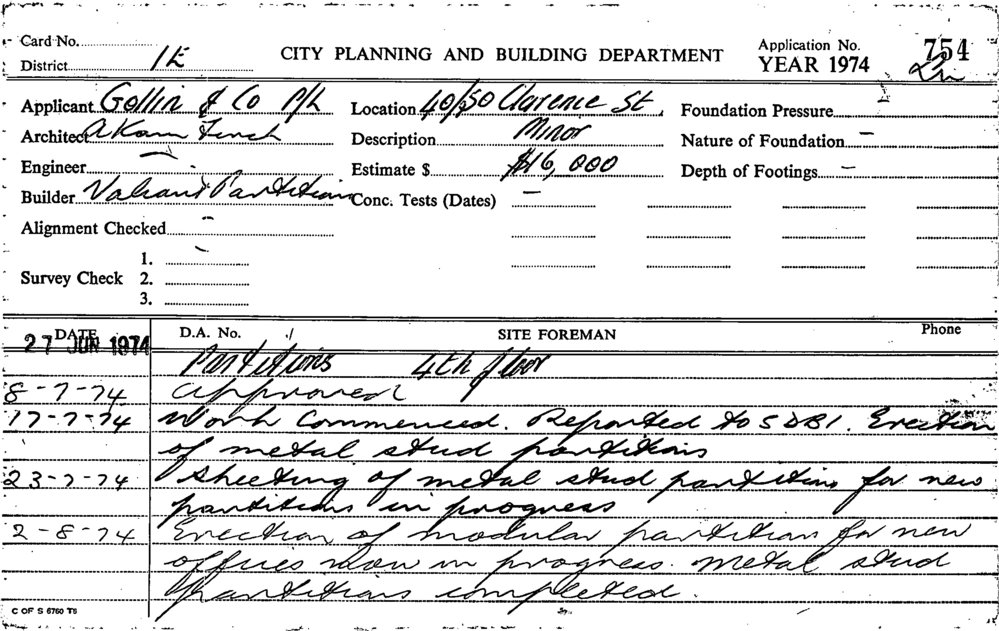 Card No.
District 1E
CITY PLANNING AND BUILDING DEPARTMENT
Application No. 754
YEAR 1974
Applicant Gollin & Co P/L
Location 40/50 Clarence St.
Foundation Pressure –
Architect
Description Minor
Nature of Foundation –
Engineer –
Estimate $ $16,000
Depth of Footings –
Builder Valiant Partitions
Conc. Tests (Dates) –
Alignment Checked –
Survey Check
1.
2.
3.
DATE
D.A. No.
SITE FOREMAN
Phone
27 JUN 1974 Partitions 4th floor
8-7-74 Approved
17-7-74 Work Commenced. Reported to SDBI. Erection
of metal stud partitions
23-7-74 Sheeting of metal stud partitions for new
partitions in progress
2-8-74 Erection of modular partitions for new
offices now in progress. Metal stud
partitions completed.
C OF S 6760 T5